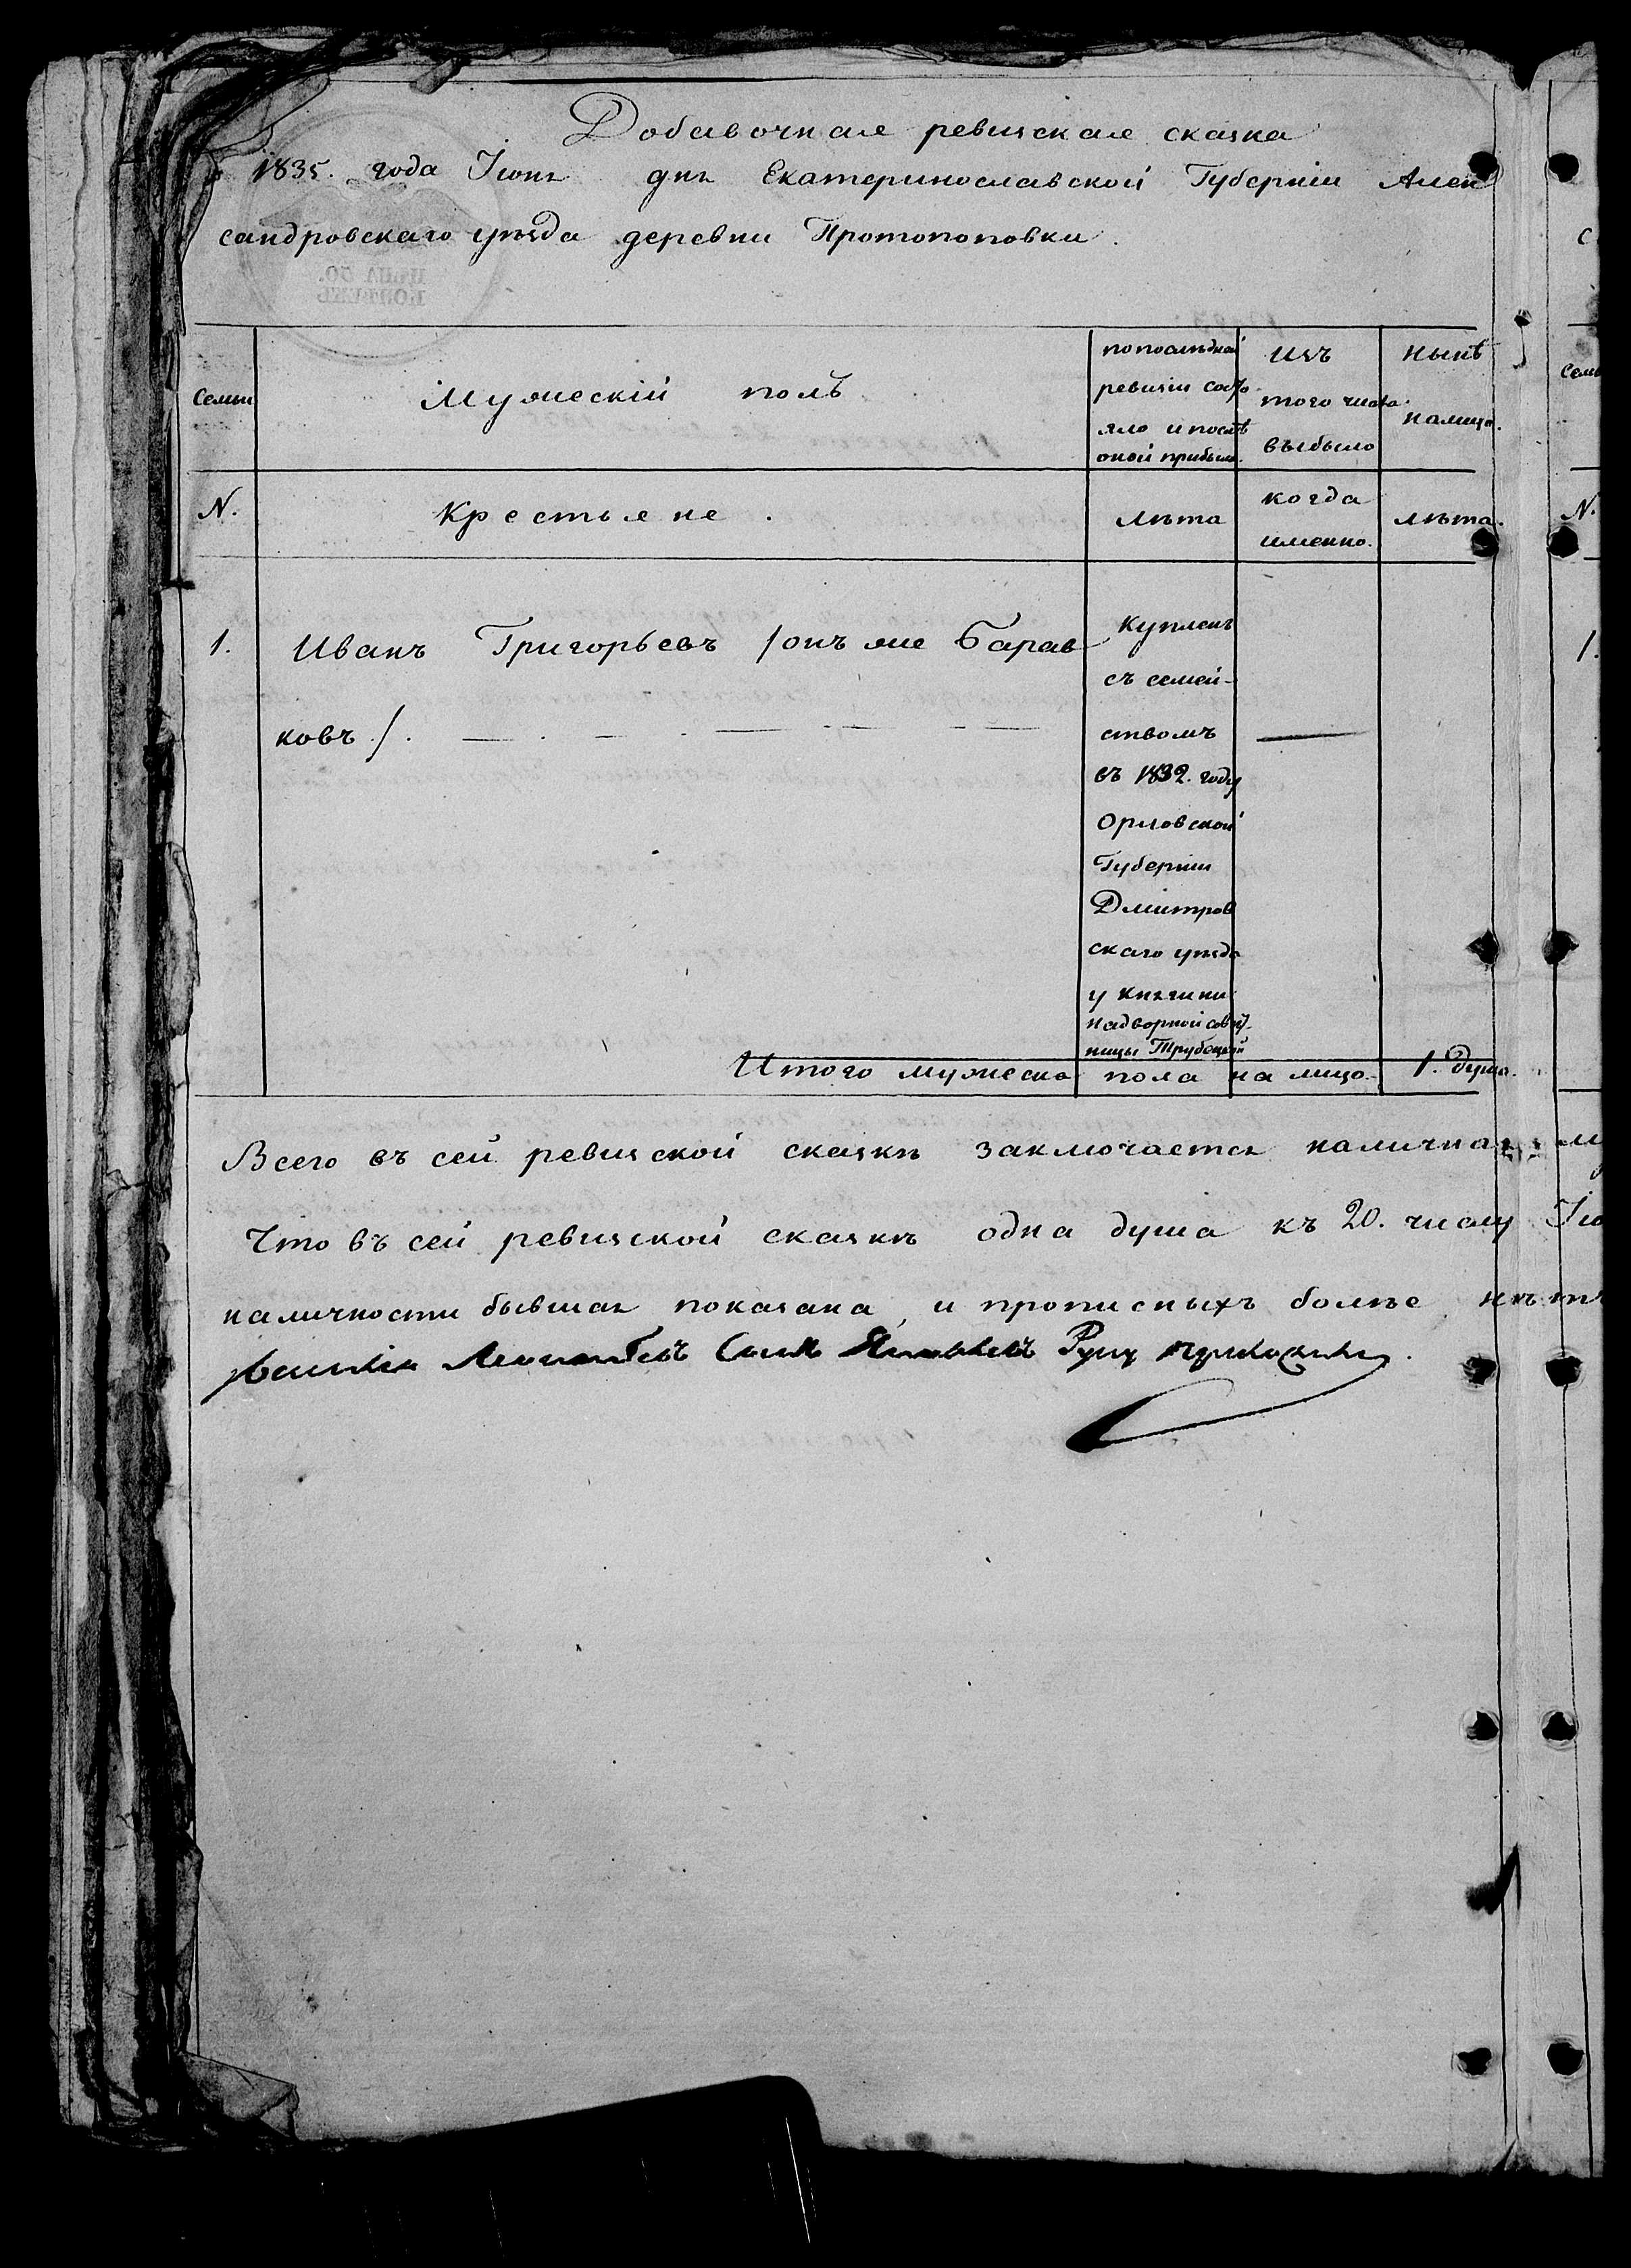 Добавочная ревизская сказка
1835. года Іюня дня Екатеринославской Губерніи Алек
сандровскаго уѣзда деревни Протопоповки.
ЦѢНА 50.
КОПѢЕКЪ
Семьи
Мужескій полъ
по послѣдней
ревизіи состо
яло и послѣ
оной прибыло.
изъ
того числа
выбыло
нынѣ
на лицо.
N.
Крестьяне.
лѣта
когда
именно.
лѣта.
1. Иванъ Григорьевъ /онъ же Барав
ковъ/.
Купленъ
съ семей-
ствомъ
въ 1832. году
Орловской
Губерніи
Дмитров
скаго уѣзда
у Княгини
надворной совѣт-
ницы Трубецкой
Итого мужеска пола на лицо. 1. душа.
Всего въ сей ревизской сказкѣ заключается наличная
Что въ сей ревизской сказкѣ одна душа къ 20. числу
наличности бывшая показана, и прописныхъ болѣе нѣтъ
Руку приложилъ.
Семьи
N.
1.